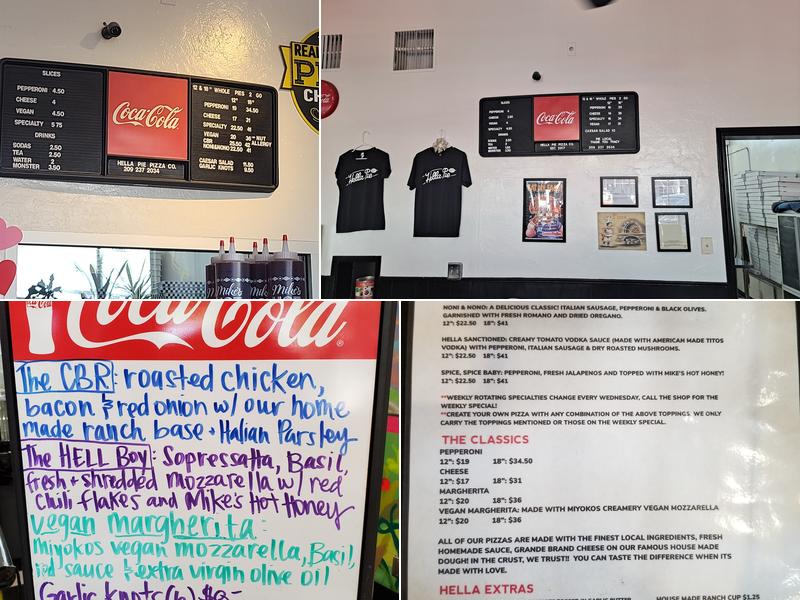 SLICES
PEPPERONI 4.50
CHEESE 4
VEGAN 4.50
SPECIALTY 5 75
DRINKS
SODAS 2.50
TEA 2.50
WATER 2
MONSTER 3.50
Coca-Cola
HELLA PIE PIZZA CO.
209 237 2034
12 & 18" WHOLE PIES 2 GO
12" 18"
PEPPERONI 19 34.50
CHEESE 17 31
SPECIALTY 22.50 41
VEGAN 20 36
CBR 25.50 42
NONI&NONO 22.50 41
NUT
ALLERGY
CAESAR SALAD 11.50
GARLIC KNOTS 9.50
REAL
CH
Mike's
Mike's
Coca-Cola
HELLA PIE PIZZA CO.
Hella Pie
Hella Pie
SLICES
12 & 18" WHOLE PIES 2 GO
PEPPERONI
CHEESE
VEGAN
SPECIALTY
DRINKS
CAESAR SALAD
209 237 2034
Coca-Cola
The CBR: roasted chicken,
bacon & red onion w/ our home
made ranch base + Italian Parsley
The HELL Boy: Sopressatta, Basil,
fresh + shredded mozzarella w/ red
Chili flakes and Mike's Hot Honey
vegan margherita:
Miyokos vegan mozzarella, Basil,
red sauce & extra virgin olive oil
Garlic Knots (6) $8-
NONI & NONO: A DELICIOUS CLASSIC! ITALIAN SAUSAGE, PEPPERONI & BLACK OLIVES.
GARNISHED WITH FRESH ROMANO AND DRIED OREGANO.
12": $22.50 18": $41
HELLA SANCTIONED: CREAMY TOMATO VODKA SAUCE (MADE WITH AMERICAN MADE TITOS
VODKA) WITH PEPPERONI, ITALIAN SAUSAGE & DRY ROASTED MUSHROOMS.
12": $22.50 18": $41
SPICE, SPICE BABY: PEPPERONI, FRESH JALAPENOS AND TOPPED WITH MIKE'S HOT HONEY!
12": $22.50 18": $41
**WEEKLY ROTATING SPECIALTIES CHANGE EVERY WEDNESDAY, CALL THE SHOP FOR THE
WEEKLY SPECIAL!
**CREATE YOUR OWN PIZZA WITH ANY COMBINATION OF THE ABOVE TOPPINGS. WE ONLY
CARRY THE TOPPINGS MENTIONED OR THOSE ON THE WEEKLY SPECIAL.
THE CLASSICS
PEPPERONI
12": $19 18": $34.50
CHEESE
12": $17 18": $31
MARGHERITA
12": $20 18": $36
VEGAN MARGHERITA: MADE WITH MIYOKOS CREAMERY VEGAN MOZZARELLA
12": $20 18": $36
ALL OF OUR PIZZAS ARE MADE WITH THE FINEST LOCAL INGREDIENTS, FRESH
HOMEMADE SAUCE, GRANDE BRAND CHEESE ON OUR FAMOUS HOUSE MADE
DOUGH! IN THE CRUST, WE TRUST!! YOU CAN TASTE THE DIFFERENCE WHEN ITS
MADE WITH LOVE.
HELLA EXTRAS
HOUSE MADE RANCH CUP $1.25